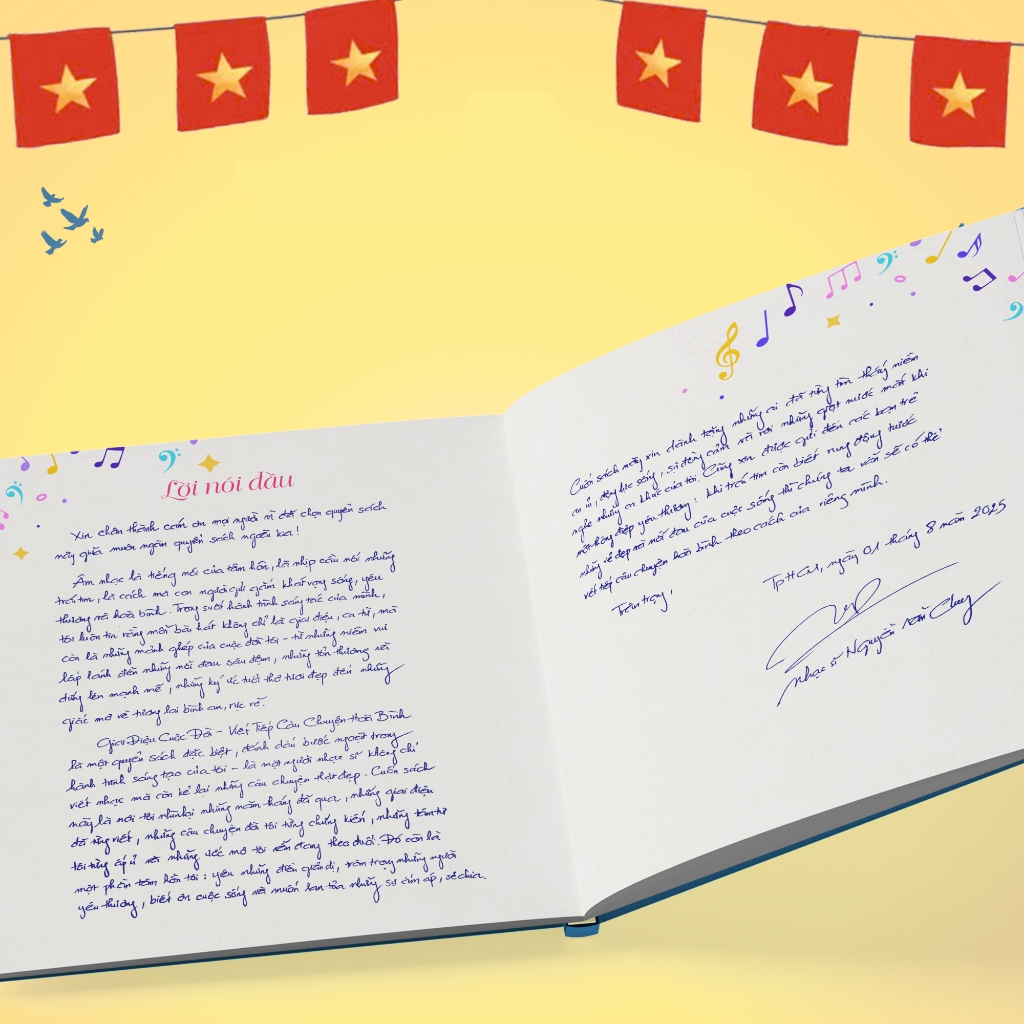 Lời nói đầu
Xin chân thành cảm ơn mọi người vì đã chọn quyển sách
này giữa muôn ngàn quyển sách ngoài kia!
Âm nhạc là tiếng nói của tâm hồn, là nhịp cầu nối những
trái tim, là cách mà con người gửi gắm khát vọng sống, yêu
thương và hoà bình. Trong suốt hành trình sáng tác của mình,
tôi luôn tin rằng mỗi bài hát không chỉ là giai điệu, ca từ, mà
còn là những mảnh ghép của cuộc đời tôi - từ những niềm vui
lấp lánh đến những nỗi đau sâu đậm, những tổn thương rồi
đứng lên mạnh mẽ, những ký ức tuổi thơ tươi đẹp đến những
giấc mơ về tương lai bình an, rực rỡ.
Giai Điệu Cuộc Đời - Viết Tiếp Câu Chuyện Hoà Bình
là một quyển sách đặc biệt, đánh dấu bước ngoặt trong
hành trình sáng tạo của tôi - là một người nhạc sĩ không chỉ
viết nhạc mà còn kể lại những câu chuyện thật đẹp. Cuốn sách
này là nơi tôi nhìn lại những năm tháng đã qua, những giai điệu
đã từng viết, những câu chuyện đời tôi từng chứng kiến, những tâm tư
tôi từng ấp ủ và những ước mơ tôi vẫn đang theo đuổi. Đó còn là
một phần tâm hồn tôi: yêu những điều giản dị, trân trọng những người
yêu thương, biết ơn cuộc sống và muốn lan tỏa những sự ấm áp, sẻ chia.
Cuốn sách này xin dành tặng những ai đã từng tìm thấy niềm
an ủi, động lực sống, sự đồng cảm và rơi những giọt nước mắt khi
nghe những ca khúc của tôi. Cũng xin được gửi đến các bạn trẻ
một thông điệp yêu thương: khi trái tim còn biết rung động trước
những vẻ đẹp và nỗi đau của cuộc sống thì chúng ta vẫn sẽ có thể
viết tiếp câu chuyện hoà bình theo cách của riêng mình.
Trân trọng,
TpHCM, ngày 01 tháng 8 năm 2025
Nhạc sĩ Nguyễn Văn Chung